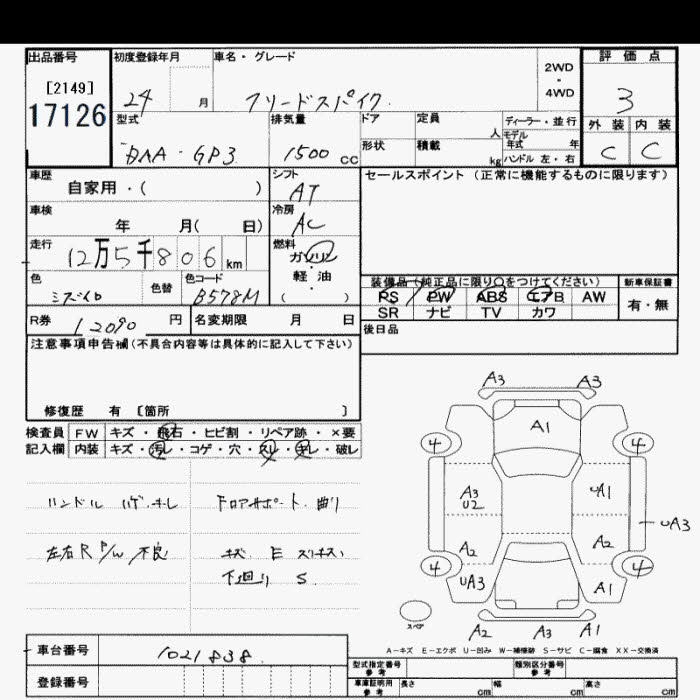 出品番号 初度登録年月 車名・グレード 2WD・4WD 評価点
[2149] 24 月 フリードスパイク 3
17126 型式 排気量 ドア 定員 人 ディーラー・並行 外装 内装
DAA-GP3 1500 cc 形状 積載 kg モデル年式 年 ハンドル 左・右 C C
車歴 自家用・( ) シフト AT セールスポイント (正常に機能するものに限ります)
車検 年 月( 日) 冷房 AC
走行 12万5千806 km 燃料 ガソリン・軽油 ( )
色 ミズイロ 色替 色コード B578M
装備品(純正品に限り○をつけてください) 新車保証書
PS PW ABS エアB AW 有・無
SR ナビ TV カワ
R券 12090 円 名変期限 月 日 後日品
注意事項申告欄(不具合内容等は具体的に記入して下さい)
修復歴 有 [箇所 ]
検査員 FW キズ・飛石・ヒビ割・リペア跡・×要
記入欄 内装 キズ・汚レ・コゲ・穴・スレ・キレ・破レ
ハンドル ハゲ・キレ
左右R P/W 不良
フロアサポート 曲り
キズ E スリキズ
下廻り S
A3 A3
A1
4 4
A3 U2 UA1
UA3
A2 A2
4 4
UA3 A1
スペア
A2 A3 A1
A-キズ E-エクボ U-凹み W-補修跡 S-サビ C-腐食 XX-交換済
車台番号 1021838
登録番号
型式指定番号 参考 類別区分番号 参考
車庫証明用 参考 長さ cm 幅 cm 高さ cm